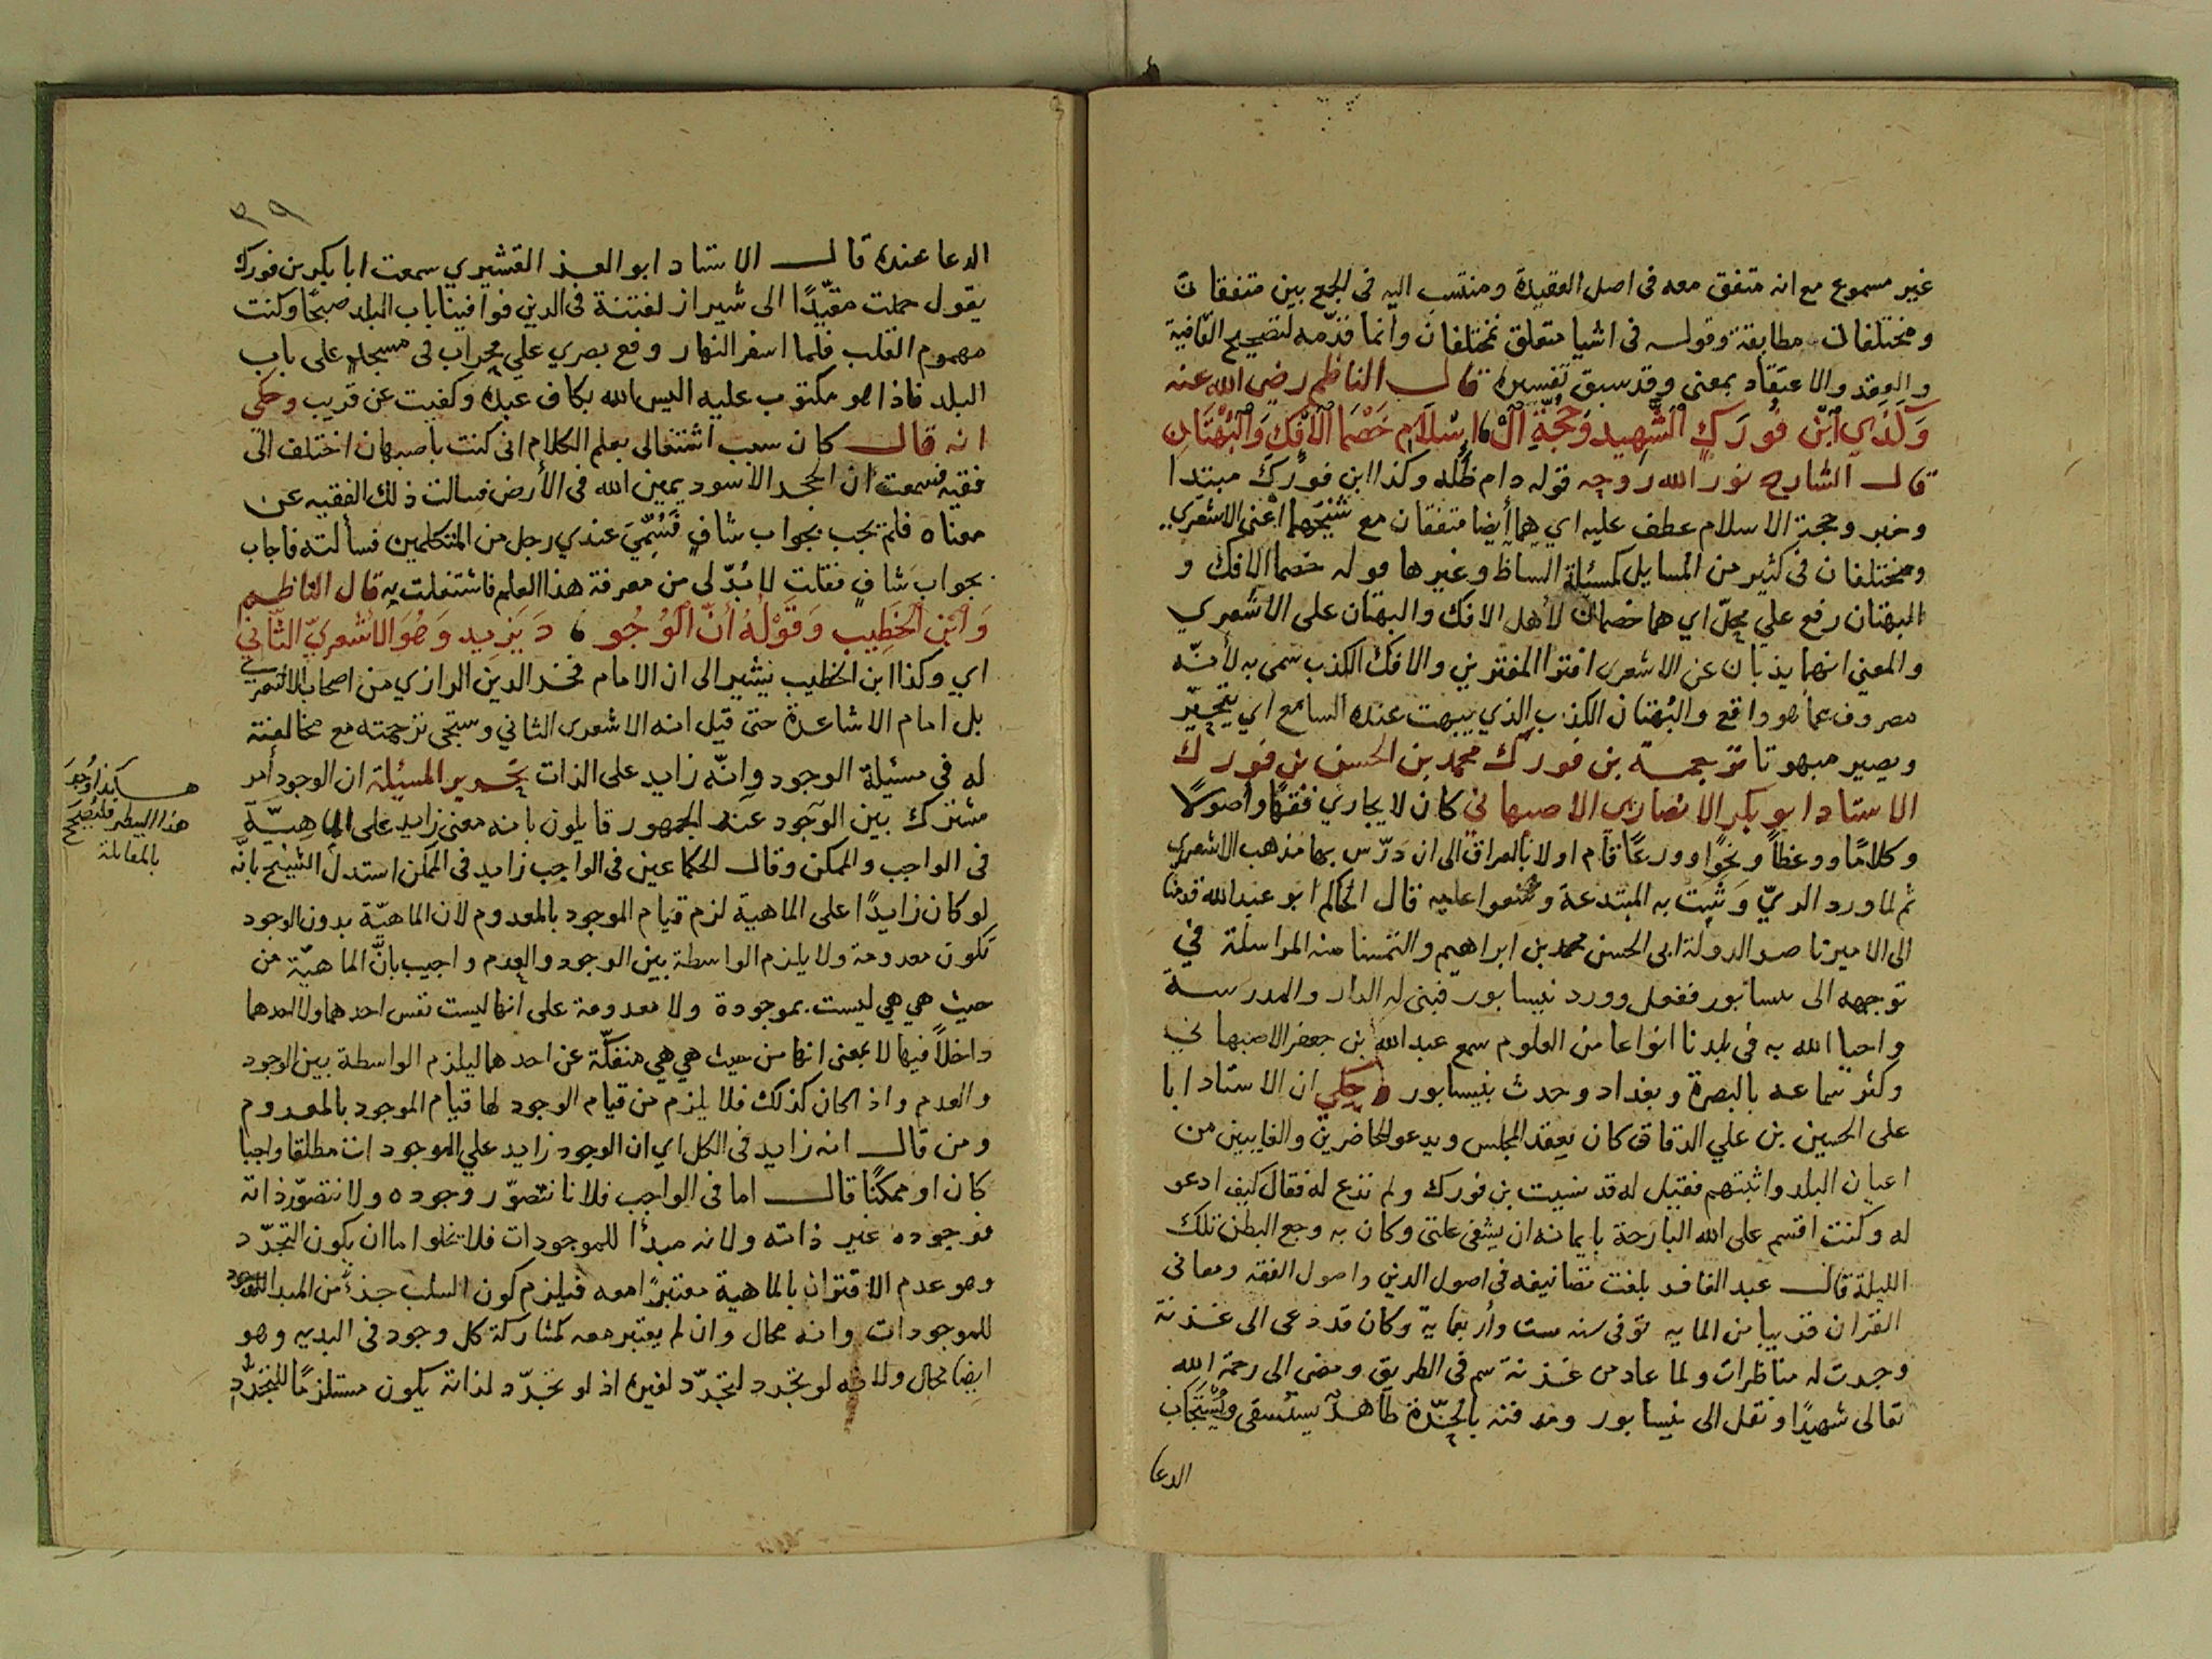 غير مسموع مع انه متفق معه فى اصل العقيدة ومنتسب اليه فى الجمع بين متفقان
ومختلفان مطابقة وقوله فى اشيا متعلق بمختلفان وانما قدّمه لتصحيح القافية
والعقد والاعتقاد بمعنى وقد سبق تفسيره قال الناظم رضى الله عنه
وَكَذَى ٱبْن فُورَكٍ الشَّهِيد وَحُجَّةِ ٱلْ اسْلَام خَصْمَا ٱلْاِفْكِ وَالْبُهْتَانِ
قال الشارح نور الله روحه قوله دام ظله وكذا ابن فورك مبتدا
وخبر وحجة الاسلام عطف عليه اي هما أيضا متفقان مع شيخهما اعنى الاشعرى
ومختلفان فى كثير من المسايل كمسئلة الساظ وغيرها قوله خصما الافك و
البهتان رفع علي محلّ اي هما خصمان لأهل الافك والبهتان على الأشعري
والمعنى انهما يذبان عن الاشعرى افترا المفترين والافك الكذب سمى به لأنّه
مصروف عما هو واقع والبُهتان الكذب الذي يبهت عنده السامع اي يتحيّر
ويصير مبهوتا ترجمة بن فورك محمد بن الحسن بن فورك
الاستاد ابو بكر الانصارى الاصبهاني كان لا يجارى فقهًا وأصولًا
وكلامًا ووعظًا ونحوًا وورعًا قام اولا بالعراق الى ان درّس بها مذهب الاشعري
ثم لما ورد الريّ وَشَبَت به المبتدعة وشنعوا عليه قال الحاكم ابو عبد الله قدمنا
الى الامير ناصر الدولة ابى الحسن محمد بن ابراهيم والتمسنا منه المراسلة في
توجهه الى نيسابور ففعل وورد نيسابور فبنى له الدار والمدرسة
واحيا الله به فى بلدنا انواعا من العلوم سمع عبد الله بن جعفر الاصبهاني
وكثر سماعه بالبصرة وبغداد وحدث بنيسابور وحكي ان الاستاد ابا
على الحسين بن علي الدقاق كان يعقد المجلس ويدعو للحاضرين والغايبين من
اعيان البلد وائمتهم فقيل له قد نسيت بن فورك ولم تدع له فقال كيف ادعو
له وكنت اقسم على الله البارحة بايمانه ان يشفى علتى وكان به وجع البطن تلك
الليلة قال عبد الغافر بلغت تصانيفه فى اصول الدين واصول الفقه ومعانى
القران قريبا من المايه توفى سنه ست وأربعماية وكان قد دعى الى غزنة
وجرت له مناظرات ولما عاد من غزنة سم فى الطريق ومضى الى رحمة الله
تعالى شهيدًا ونقل الى نيسابور ومدفنه بالحِيَرة ظاهرًا يستسقى ويُسْتَجَاب
الدعا
٣٩
الدعا عنده قال الاستاد ابو العز القشيري سمعت ابا بكر بن فورك
يقول حملت مقيّدًا الى شيراز لفتنة فى الدين فوافينا باب البلد صبحًا وكنت
مهموم القلب فلما اسفر النهار وقع بصري علي محراب فى مسجد على باب
البلد فاذا هو مكتوب عليه اليس الله بكاف عبده وكفيت عن قريب وحكى
انه قال كان سبب اشتغالى بعلم الكلام انى كنت باصبهان اختلف الى
فقيه فسمعت ان الحجر الاسود يمين الله فى الأرض فسالت ذلك الفقيه عن
معناه فلم يجب بجواب شافٍ فَسُمِّيَ عندي رجل من المتكلمين فسألته فاجاب
بجواب شافٍ فقلت لا بُدّ لى من معرفة هذا العلم فاشتغلت به قال الناظم
وَٱبْن ٱلخَطِيب وَقَوْلُهُ أَنَّ ٱلْوُجُو دَ يَزِيد وَهُوَ الْأَشْعَرِيّ الثَّانِي
اي وكذا ابن الخطيب يشير الى ان الامام فخر الدين الرازي من اصحاب الاشعري
بل امام الاشاعرة حتى قيل انه الاشعرى الثاني وستجى ترجمته مع مخالفته
له في مسئلة الوجود وانّه زايد على الذات تحرير المسئلة ان الوجود أمر
مشترك بين الوجود عند الجمهور قايلون بانه معنى زايد على الماهيّة
فى الواجب والممكن وقال الحكما عين فى الواجب زايد فى الممكن استدل الشيخ بانّه
لو كان زايدًا على الماهية لزم قيام الموجود بالمعدوم لان الماهيّة بدون الوجود
تكون معدومة ولا يلزم الواسطة بين الوجود والعدم واجيب بانّ الماهيّة من
حيث هي هي ليست بموجودة ولا معدومة على انها ليست نفس احدهما ولا احدهما
داخلًا فيها لا بمعنى انها من حيث هي هي منفكّة عن احدهما ليلزم الواسطة بين الوجود
والعدم واذا كان كذلك فلا يلزم من قيام الوجود لها قيام الموجود بالمعدوم
ومن قال انه زايد فى الكل اي ان الوجود زايد علي الموجودات مطلقا واجبا
كان او ممكنًا قال اما فى الواجب فلانا نتصوّر وجوده ولا نتصوّر ذاته
فوجوده غير ذاته ولانه مبدأ للموجودات فلا يخلوا اما ان يكون التجرّد
وهو عدم الاقتران بالماهية معتبرًا معه فيلزم كون السلب جزءً من المبدا الموجد
للموجودات وانه محال وان لم يعتبر معه كمشاركة كل وجود فى البديه وهو
ايضا محال ولانه لو تجرد لتجرّد لغيره اذ لو تجرّد لذاته يكون مستلزمًا للتجرّد
هكذا وُجدَ
هذا السطر فليُصحح
بالمقابلة